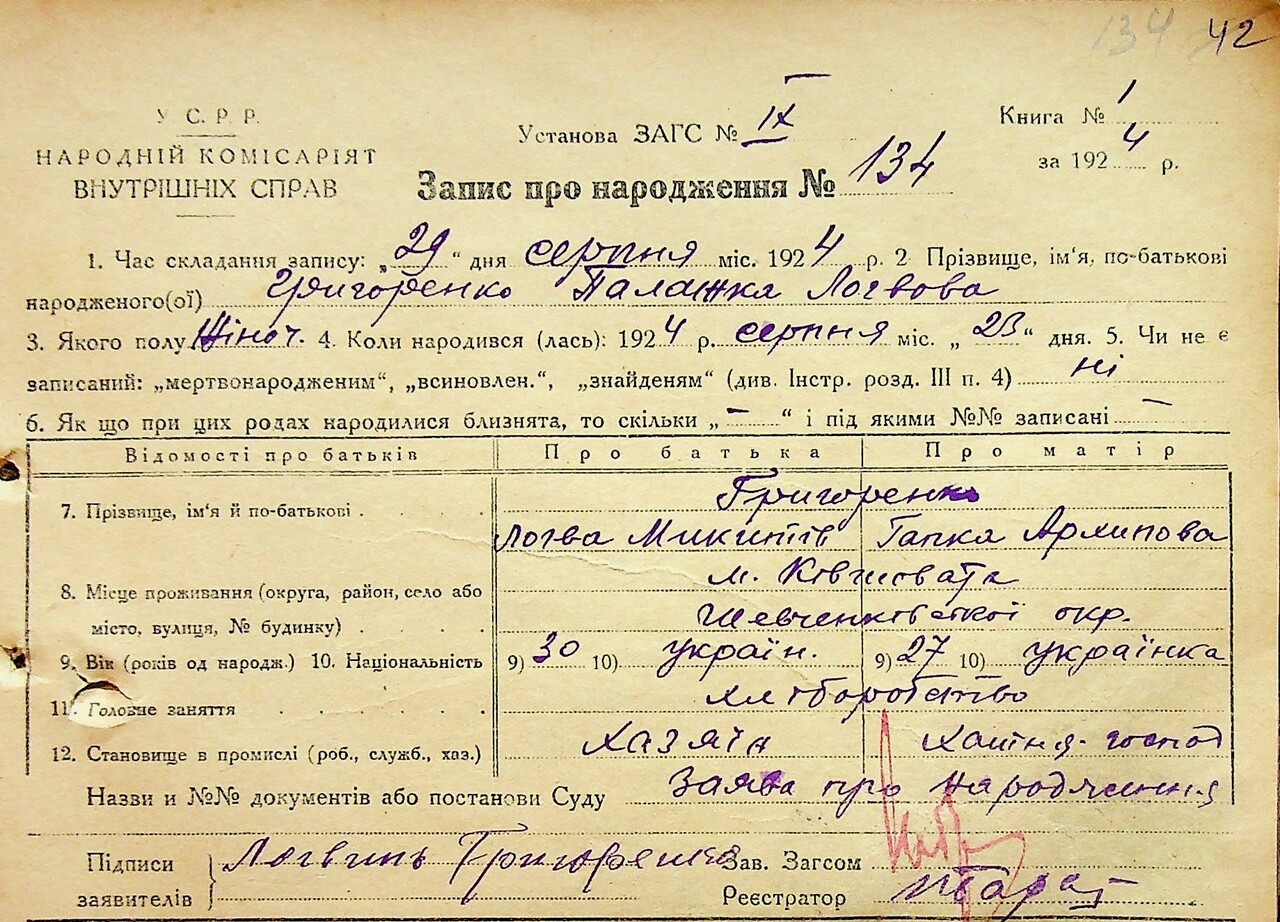 134 42
У С. Р. Р.
НАРОДНІЙ КОМІСАРІЯТ
ВНУТРІШНІХ СПРАВ
Установа ЗАГС № IX
Книга № 1
за 1924 р.
Запис про народження № 134
1. Час складання запису: „29“ дня серпня міс. 1924 р. 2 Прізвище, ім'я, по-батькові
народженого(ої) Григоренко Палажка Логвова
3. Якого полу жіноч. 4. Коли народився (лась): 1924 р. серпня міс. „23“ дня. 5. Чи не є
записаний: „мертвонародженим“, „всиновлен.“, „знайденям“ (див. Інстр. розд. III п. 4) ні
6. Як що при цих родах народилися близнята, то скільки „–“ і під якими №№ записані –
Відомості про батьків Про батька Про матір
7. Прізвище, ім'я й по-батькові . . . . . Григоренки
Логва Микитів Гапка Архипова
8. Місце проживання (округа, район, село або м. Ківшовата
місто, вулиця, № будинку) . . . . Шевченківської окр.
9. Вік (років од народж.) 10. Національність 9) 30 10) україн. 9) 27 10) українка
11. Головне заняття . . . . . . хліборобство
12. Становище в промислі (роб., служб., хаз.) Хазяїн Хатня господ
Назви и №№ документів або постанови Суду Заява про народження
Підписи
заявителів
Логвинь Григоренко
Зав. Загсом
Реєстратор